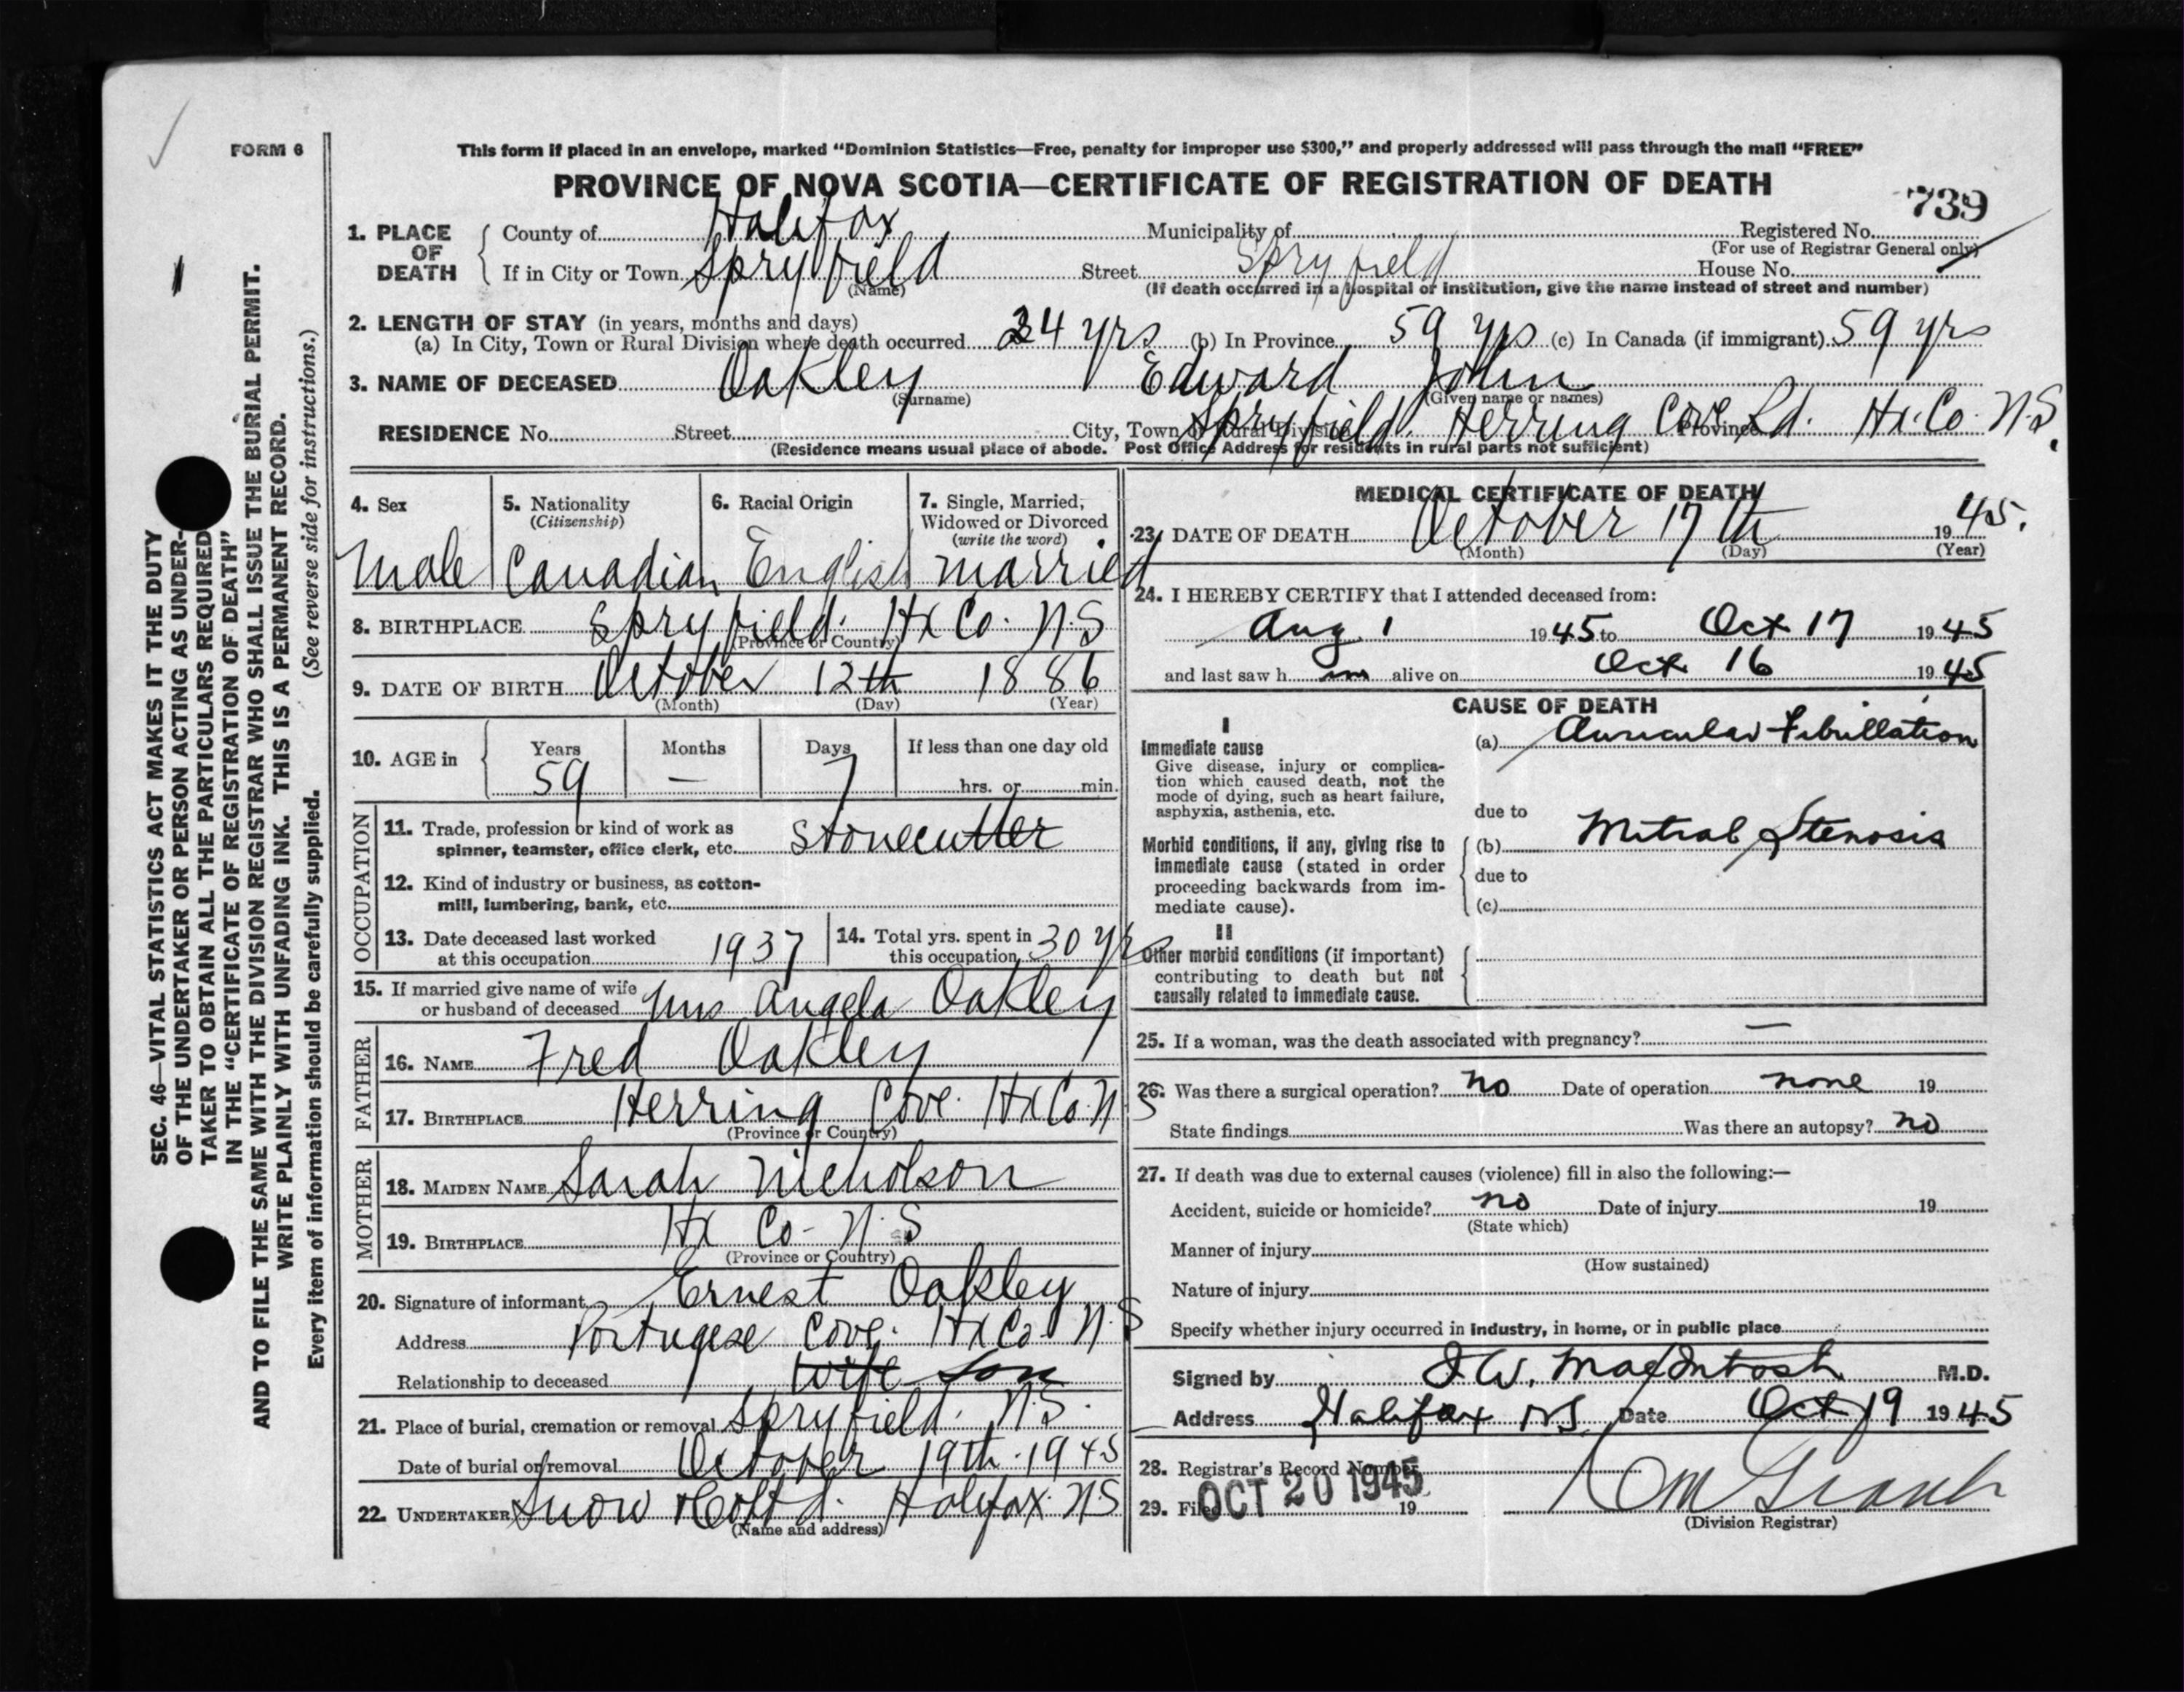 FORM 6
This form if placed in an envelope, marked "Dominion Statistics—Free, penalty for improper use $300," and properly addressed will pass through the mail "FREE"
PROVINCE OF NOVA SCOTIA—CERTIFICATE OF REGISTRATION OF DEATH
739
1. PLACE OF DEATH
County of Halifax Municipality of Registered No.
(For use of Registrar General only)
If in City or Town Spryfield Street Spryfield House No.
(Name) (If death occurred in a hospital or institution, give the name instead of street and number)
2. LENGTH OF STAY (in years, months and days)
(a) In City, Town or Rural Division where death occurred 24 yrs (b) In Province 59 yrs (c) In Canada (if immigrant) 59 yrs
3. NAME OF DECEASED Oakley Edward John
(Surname) (Given name or names)
RESIDENCE No. Street City, Town or Rural Division Spryfield. Herring Cove Rd. Province Hx. Co. N.S.
(Residence means usual place of abode. Post Office Address for residents in rural parts not sufficient)
4. Sex
Male
5. Nationality
(Citizenship)
Canadian
6. Racial Origin
English
7. Single, Married, Widowed or Divorced
(write the word)
married
8. BIRTHPLACE Spryfield. Hx Co. N.S
(Province or Country)
9. DATE OF BIRTH October 12th 1886
(Month) (Day) (Year)
10. AGE in
Years Months Days If less than one day old
59 — 7 hrs. or min.
OCCUPATION
11. Trade, profession or kind of work as
spinner, teamster, office clerk, etc. Stonecutter
12. Kind of industry or business, as cotton-
mill, lumbering, bank, etc.
13. Date deceased last worked
at this occupation 1937
14. Total yrs. spent in
this occupation 30 yrs
15. If married give name of wife
or husband of deceased Mrs Angela Oakley
FATHER
16. NAME Fred Oakley
17. BIRTHPLACE Herring Cove. Hx Co. N S
(Province or Country)
MOTHER
18. MAIDEN NAME Sarah Nicholson
19. BIRTHPLACE Hx Co- N.S
(Province or Country)
20. Signature of informant Ernest Oakley
Address Portugese Cove. Hx Co. N.S
Relationship to deceased wife Son
21. Place of burial, cremation or removal Spryfield. N.S.
Date of burial or removal October 19th. 1945
22. UNDERTAKER Snow & Co Ltd. Halifax. N.S
(Name and address)
MEDICAL CERTIFICATE OF DEATH
23. DATE OF DEATH October 17th 1945.
(Month) (Day) (Year)
24. I HEREBY CERTIFY that I attended deceased from:
Aug. 1 1945 to Oct 17 1945
and last saw him alive on Oct 16 1945
CAUSE OF DEATH
I
Immediate cause
Give disease, injury or complica-
tion which caused death, not the
mode of dying, such as heart failure,
asphyxia, asthenia, etc.
(a) Auricular Fibrillation
due to
Morbid conditions, if any, giving rise to
immediate cause (stated in order
proceeding backwards from im-
mediate cause).
(b) Mitral Stenosis
due to
(c)
II
Other morbid conditions (if important)
contributing to death but not
causally related to immediate cause.
25. If a woman, was the death associated with pregnancy? —
26. Was there a surgical operation? no Date of operation none 19
State findings Was there an autopsy? no
27. If death was due to external causes (violence) fill in also the following:—
Accident, suicide or homicide? no Date of injury 19
(State which)
Manner of injury
(How sustained)
Nature of injury
Specify whether injury occurred in industry, in home, or in public place
Signed by MacIntosh M.D.
Address Halifax NS Date Oct 19 1945
28. Registrar's Record Number
29. Filed OCT 20 1945 19
(Division Registrar)
SEC. 46—VITAL STATISTICS ACT MAKES IT THE DUTY
OF THE UNDERTAKER OR PERSON ACTING AS UNDER-
TAKER TO OBTAIN ALL THE PARTICULARS REQUIRED
IN THE "CERTIFICATE OF REGISTRATION OF DEATH"
AND TO FILE THE SAME WITH THE DIVISION REGISTRAR WHO SHALL ISSUE THE BURIAL PERMIT.
WRITE PLAINLY WITH UNFADING INK. THIS IS A PERMANENT RECORD.
Every item of information should be carefully supplied. (See reverse side for instructions.)